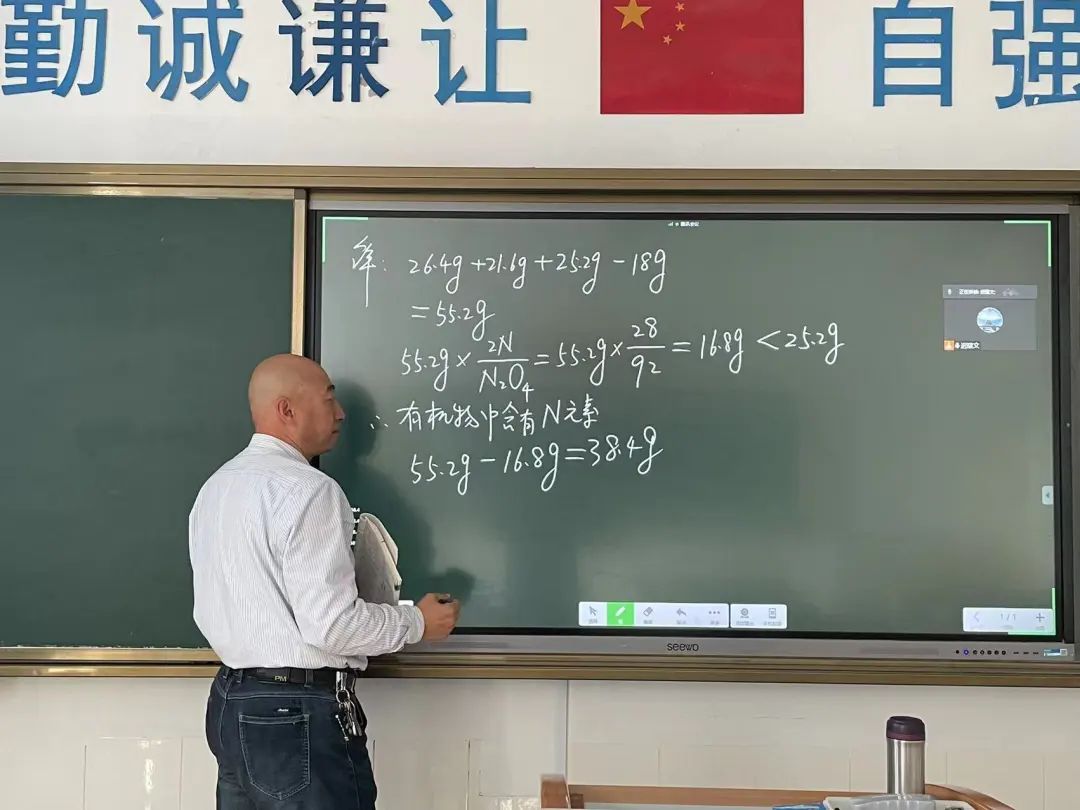 勤诚谦让 自强
解: 26.4g+21.6g+25.2g-18g
=55.2g
55.2g×2N/N₂O₄=55.2g×28/92=16.8g<25.2g
∴有机物中含有N元素
55.2g-16.8g=38.4g
1/1
seewo
PM